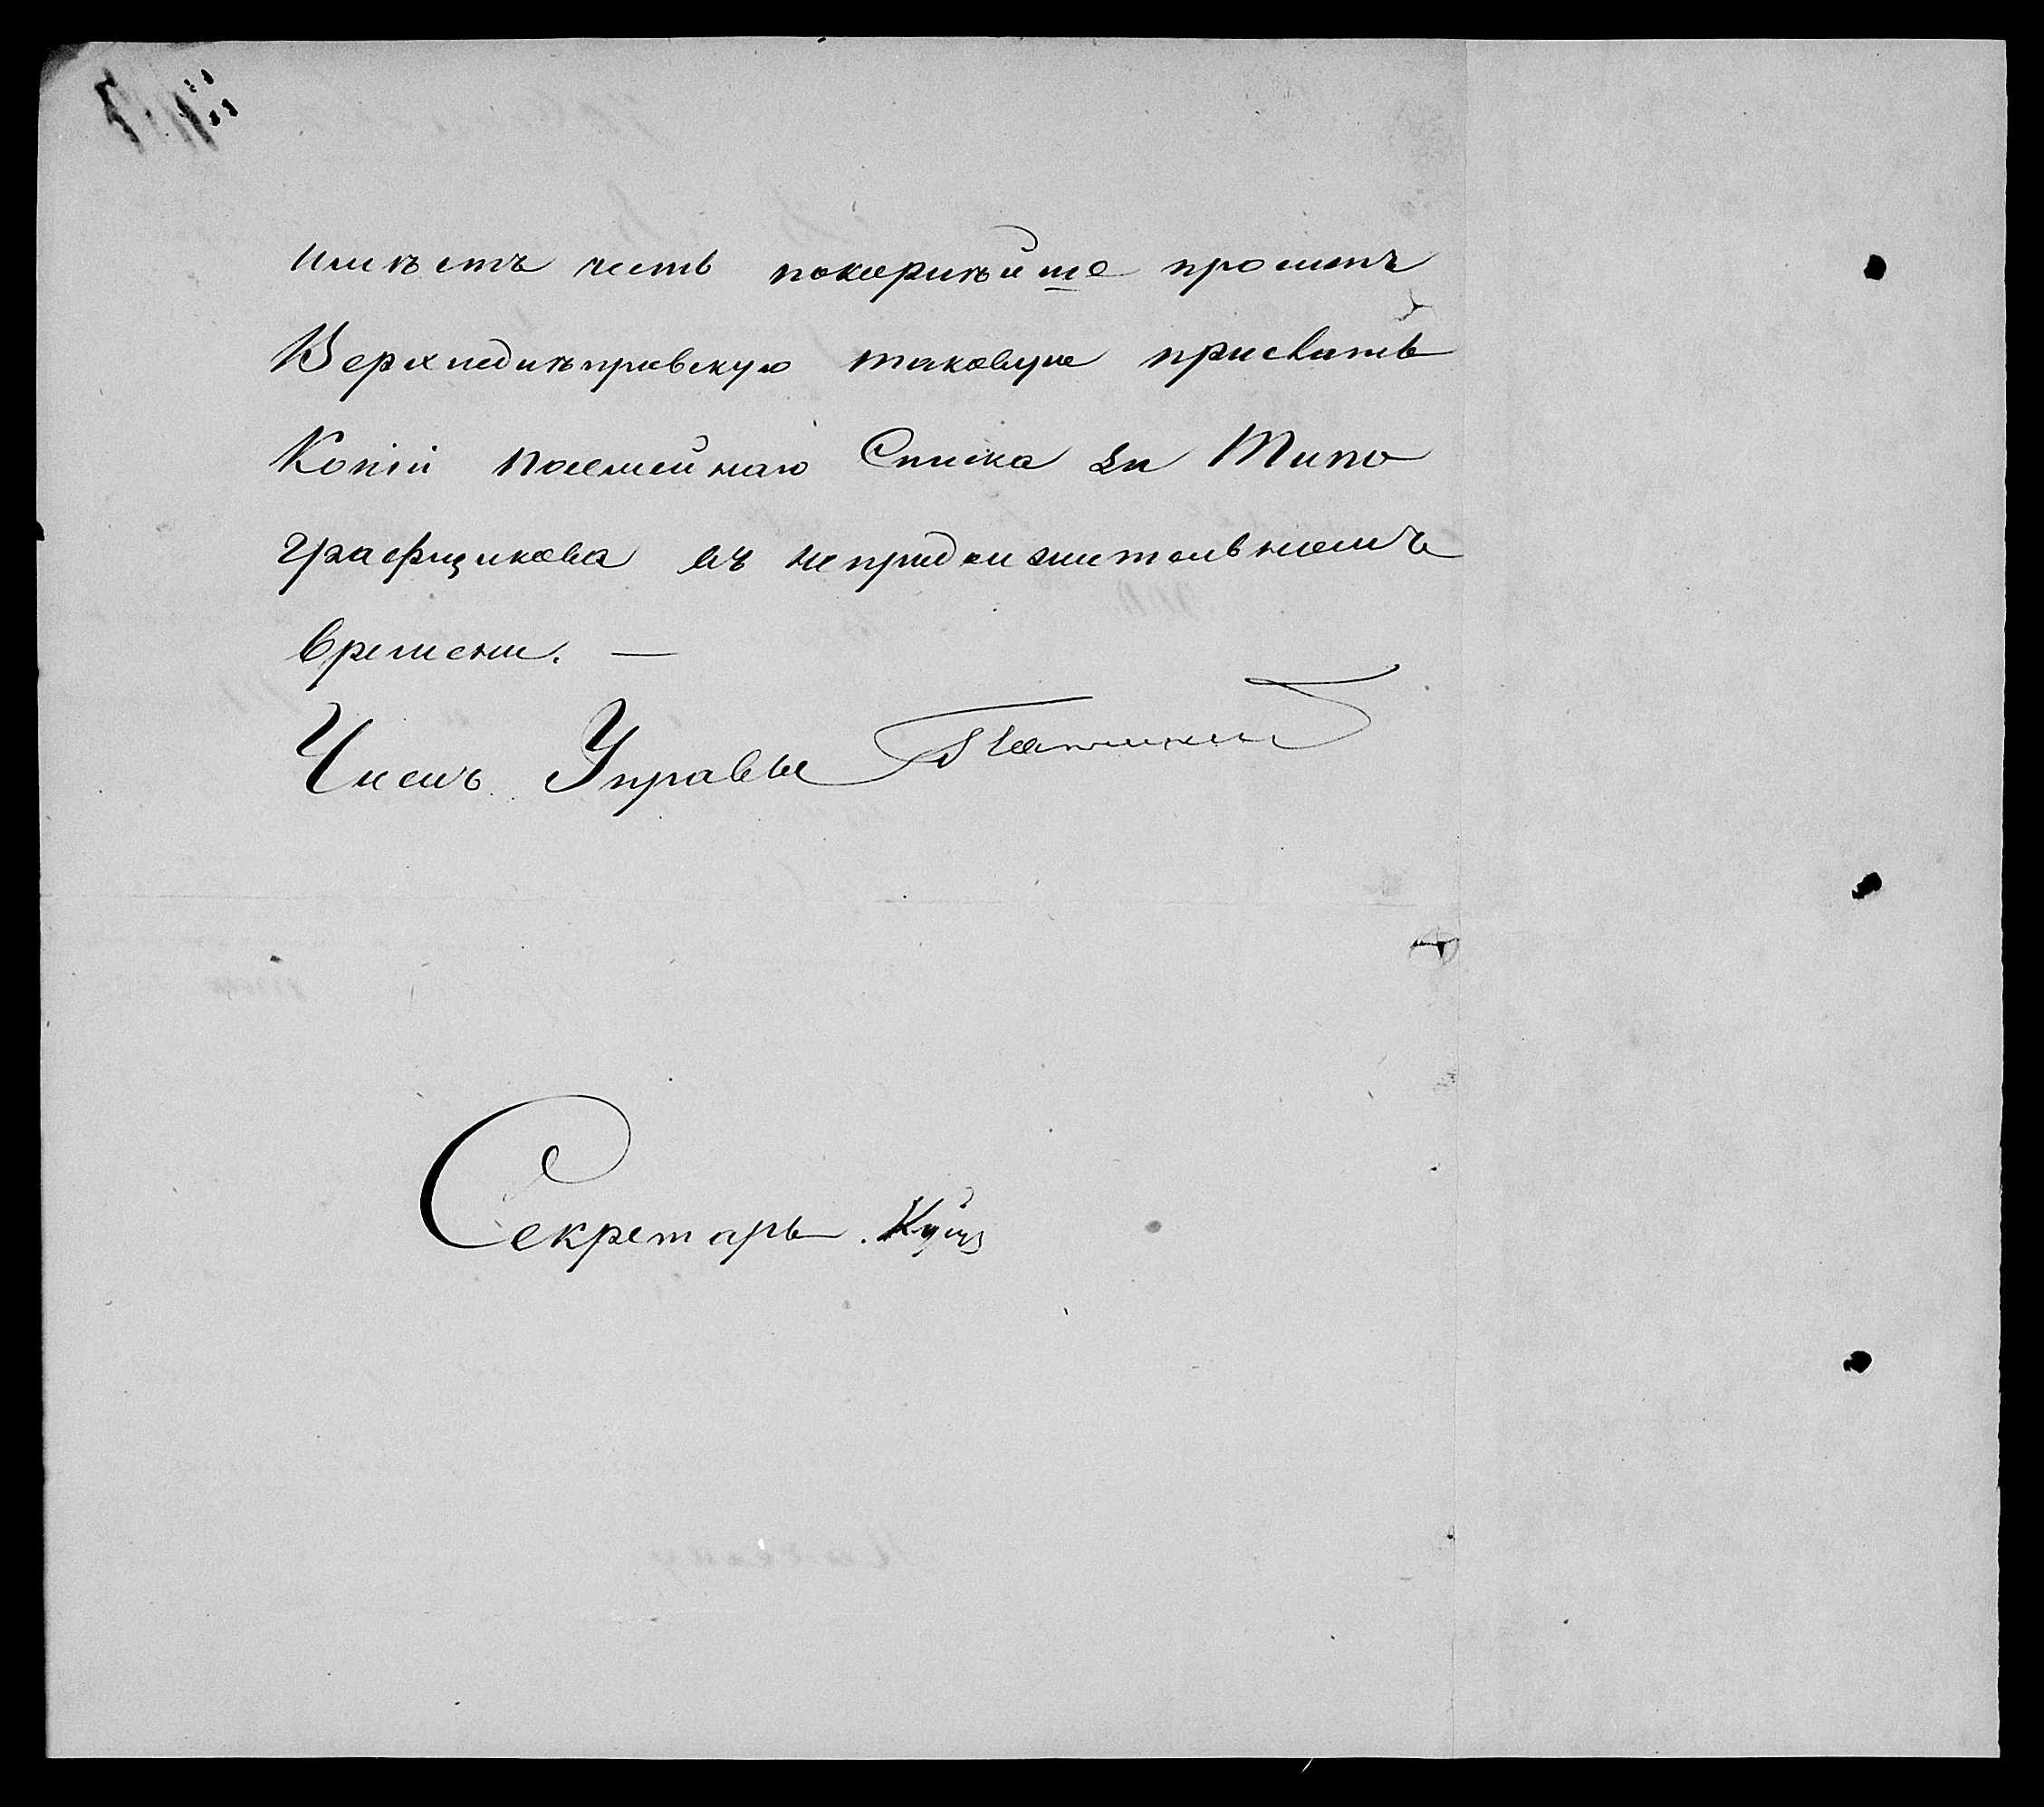 имѣетъ честь покорнѣйше проситъ
Верхнеднѣпровскую таковую прислать
Копіи посемейнаго Списка на Типо
графщикова въ непродолжительномъ
времени. —
Членъ Управы
Секретарь